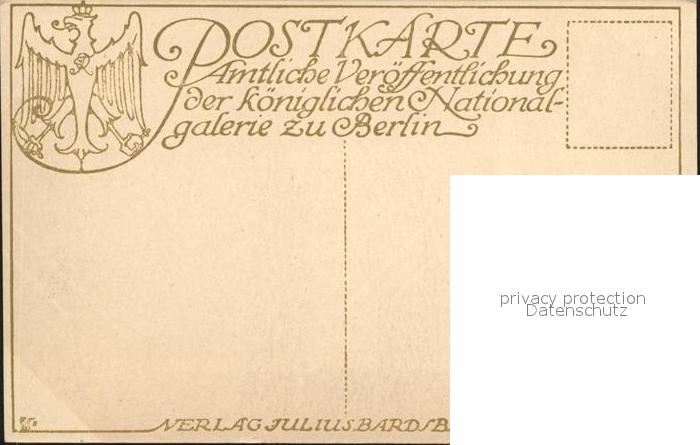 POSTKARTE
Amtliche Veröffentlichung
der königlichen National-
galerie zu Berlin
privacy protection
Datenschutz
VERLAG JULIUS BARD